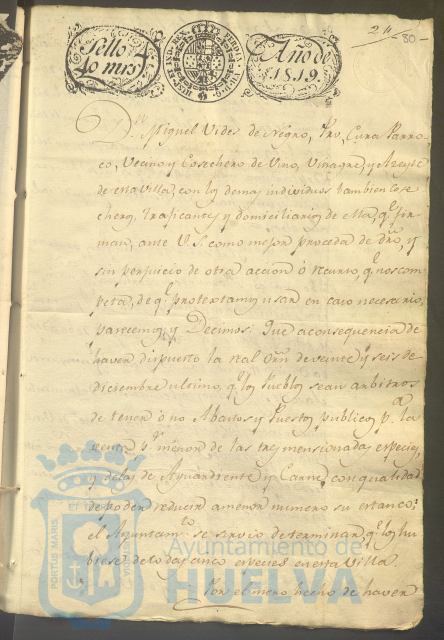 Sello
40 mrs
HISPAN. IND. REX
Año de
1819.
24
80
Dn. Miguel Vides de Negro, Pro, Cura Parro-
co, Vecino y Cosechero de Vino, Vinagre, y Aceyte
de esta Villa, con los demas individuos tambien Cose
cheros, traficantes, y domiciliarios de ella, qe. fir-
man, ante V. S. como mejor proceda de dro, y
sin perjuicio de otra accion ó recurso, qe. nos com-
peta, de qe. protestamos usar en caso necesario,
parecemos, y Decimos: Que a consequencia de
haver dispuesto la Real Orn de veinte y seis de
diciembre ultimo, qe. los Pueblos sean arbitros
de tener ó no Abastos y Puestos publicos pa. la
venta pr. menor de las tres mensionadas especies,
y de las de Aguardiente y Carne, con qualidad
de poder reducir a menor numero su estanco;
el Ayuntamto. se servio determinar, qe. los hu-
biese de todas cinco especies en esta Villa.
Por el mero hecho de haver
PORTUS MARIS
Ayuntamiento de
HUELVA